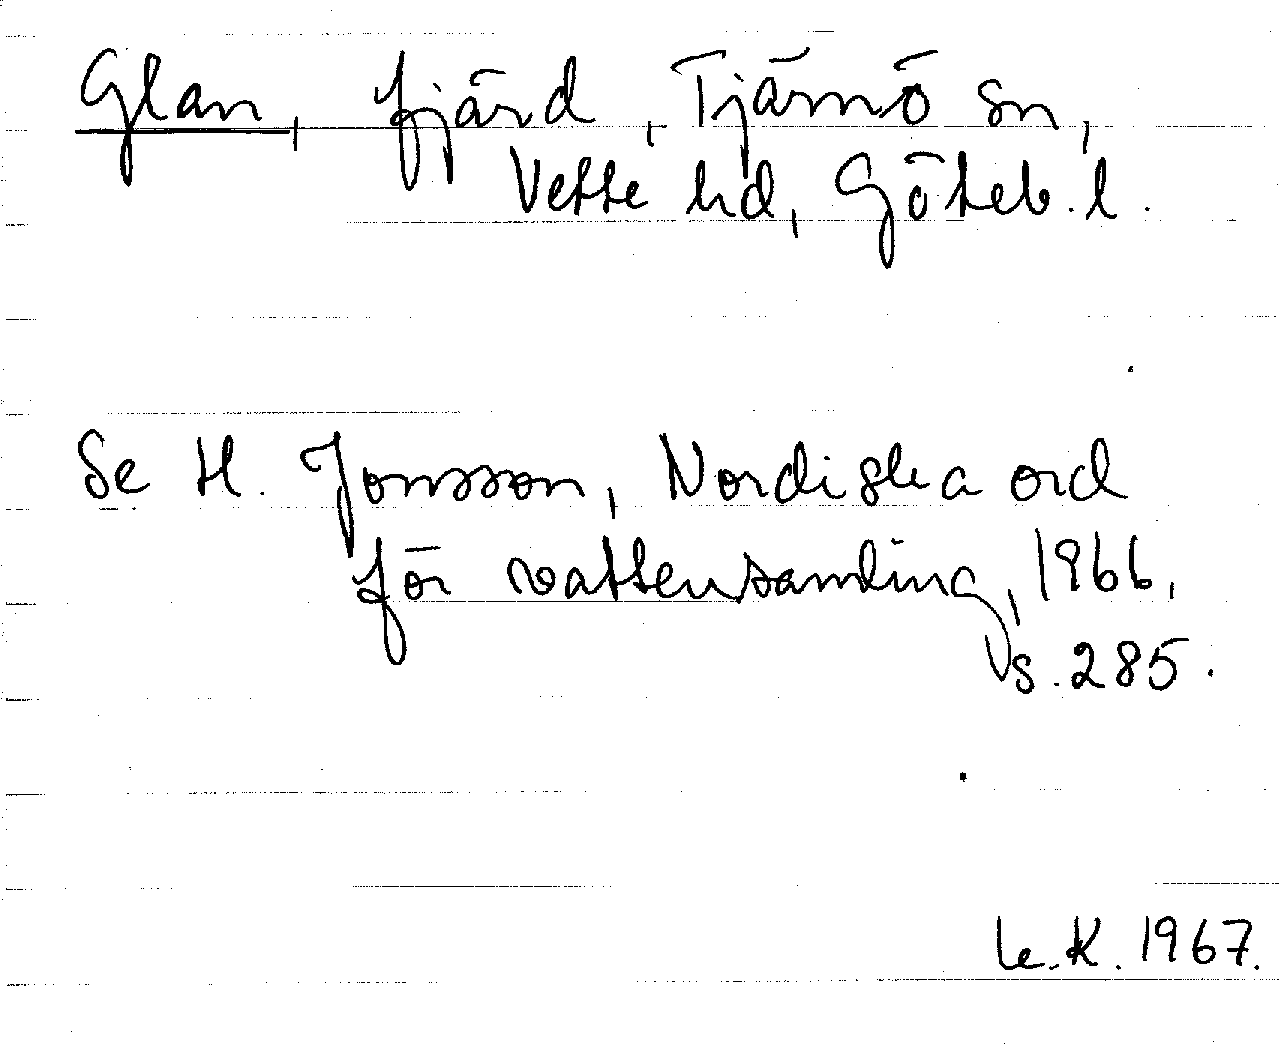 Glan, fjärd, Tjärnö sn,
Vette hd, Göteb. l.
Se H. Jonsson, Nordiska ord
för vattensamling, 1966,
s. 285.
Le. K. 1967.